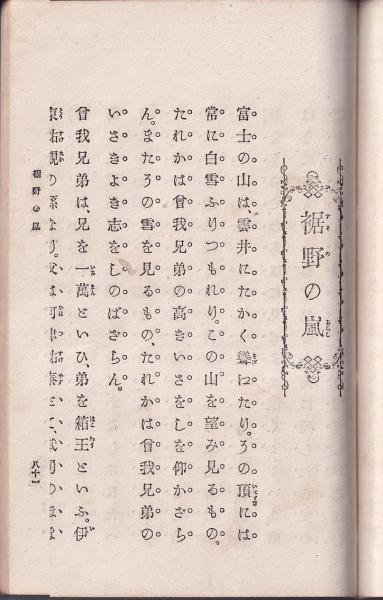 裾野の嵐
富士の山は、雲井にたかく聳ゆたり。その頂には
常に白雪ふりつもれり。この山を望み見るもの。
たれかは曾我兄弟の高きいさをしを仰かざら
ん。またその雪を見るもの、たれかは曾我兄弟の
いさきよき志をしのばざらん。
曾我兄弟は、兄を一萬といひ、弟を箱王といふ。伊
裾野の嵐
八十一